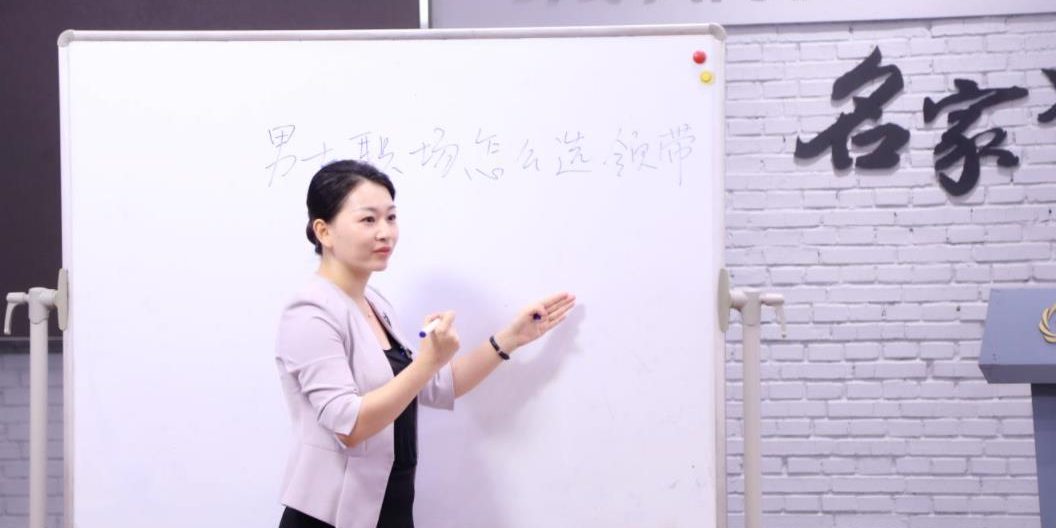 男士职场怎么选领带
名家